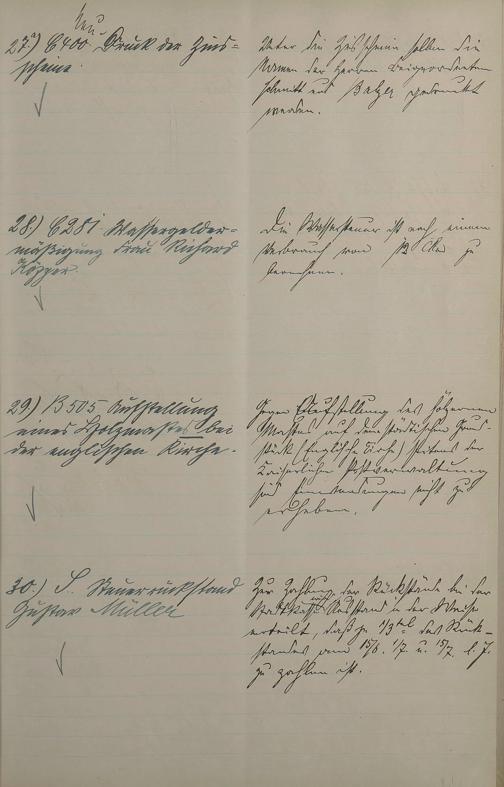 Neu
27.) C400. Druck der Zins-
scheine.
Unter die Zinsscheine sollen die
Namen der Herren Beigeordneten
Schmitt und Balzer gedruckt
werden.
28) C281 Wassergelder-
mäßigung Frau Richard
Die Wassersteuer ist nach einem
Verbrauch von 12 cbm zu
berechnen.
29) B505 Aufstellung
eines Holzmastes bei
der englischen Kirche.
Gegen Aufstellung des hölzernen
Mastes auf dem städtischen Grund-
stück (Englische Kirche) seitens der
Kaiserlichen Postverwaltung
sind Einwendungen nicht zu
erheben.
30.) S. Steuerrückstand
Gustav Müller
Zur Zahlung der Rückstände bei der
Stadtkasse wird Ausstand in der Weise
erteilt, daß je 1/3tel des Rück-
standes am 15/6. 1/7. u. 15/7. l. J.
zu zahlen ist.